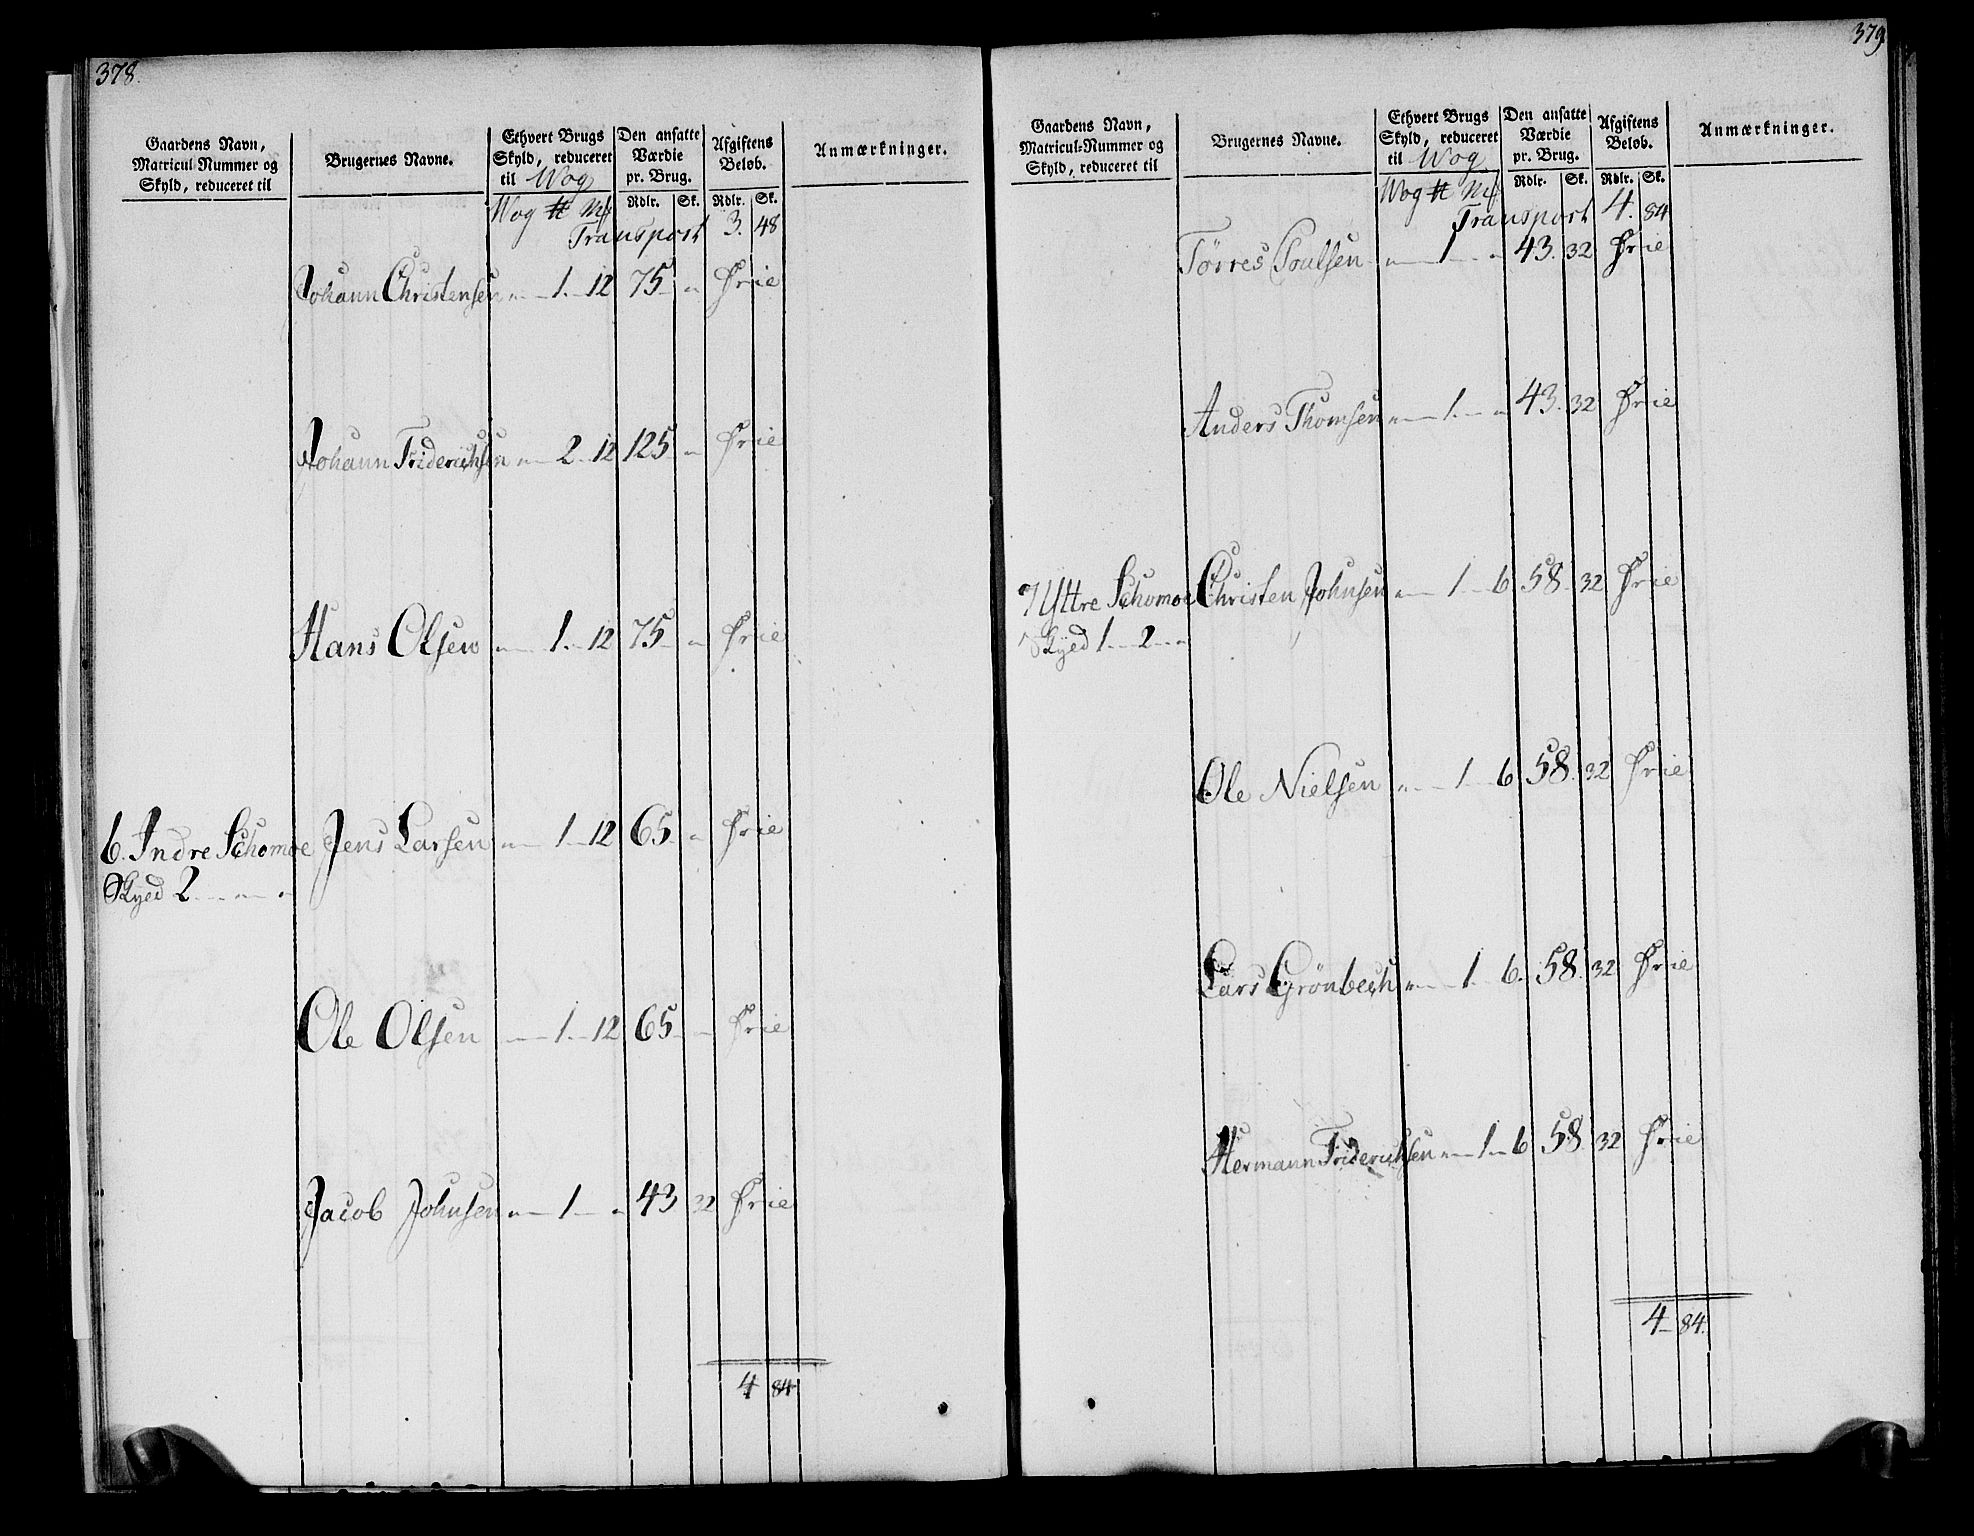 378.
Gaardens Navn, Matricul-Nummer og Skyld, reduceret til
Brugernes Navne.
Ethvert Brugs Skyld, reduceret til Wog
Den ansatte Værdie pr. Brug.
Afgiftens Beløb.
Anmærkninger.
Wog ℔ Mk Rdlr. Sk. Rdlr. Sk.
Transport 3. 48
Johann Christensen „ — 1. — 12 75 — „ Frie
Johann Friderichsen „ — 2 — 12 125 — „ Frie
Hans Olsen „ — 1. — 12 75 — „ Frie
6. Indre Schomoe Jens Larsen „ — 1 — 12 65 — „ Frie
Skyld 2 — „ — „
Ole Olsen „ — 1 — 12 65 — „ Frie
Jacob Johnsen „ — 1 — „ 43 32 Frie
4 84
379
Gaardens Navn, Matricul-Nummer og Skyld, reduceret til
Brugernes Navne.
Ethvert Brugs Skyld, reduceret til Wog
Den ansatte Værdie pr. Brug.
Afgiftens Beløb.
Anmærkninger.
Wog ℔ Mk Rdlr. Sk. Rdlr. Sk.
Transport 4. 84
Tørres Poulsen „ — 1 — „ 43. 32 Frie
Anders Thomsen „ — 1. — „ 43. 32 Frie
7 Yttre Schomoe Christen Johnsen „ — 1 — 6 58. 32 Frie
Skyld 1 — 2 — „
Ole Nielsen „ — 1 — 6 58. 32 Frie
Lars Grönbech „ — 1 — 6. 58. 32 Frie
Hermann Friderichsen „ — 1 — 6 58. 32 Frie
4 — 84.